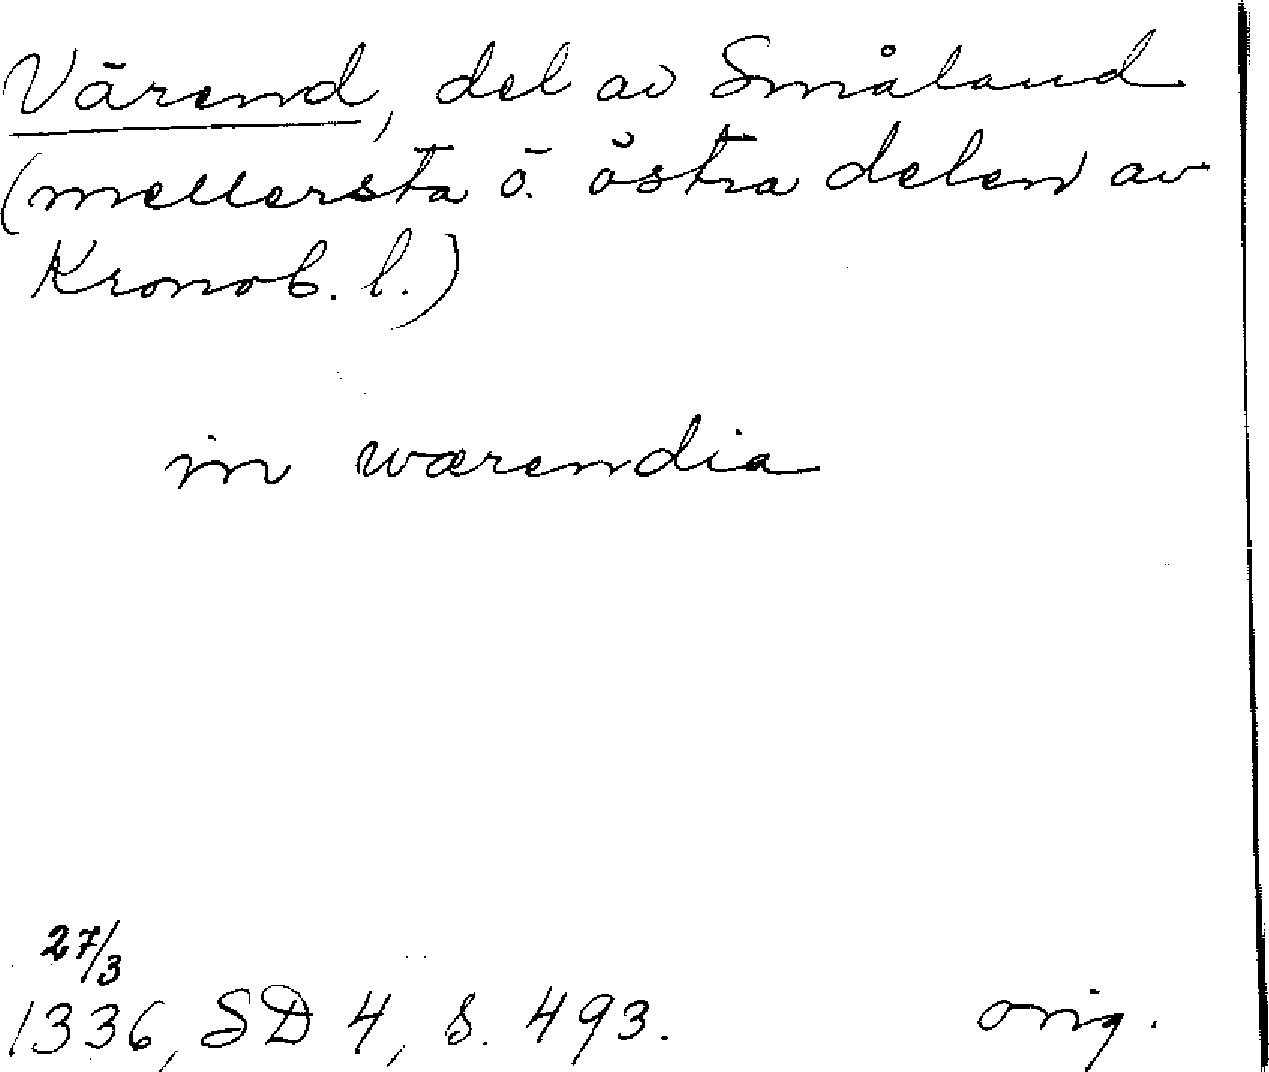 Värend, del av Småland
(mellersta o. östra delen av
Kronob. l.)
in wærendia
27/3
1336, SD 4, s. 493. orig.